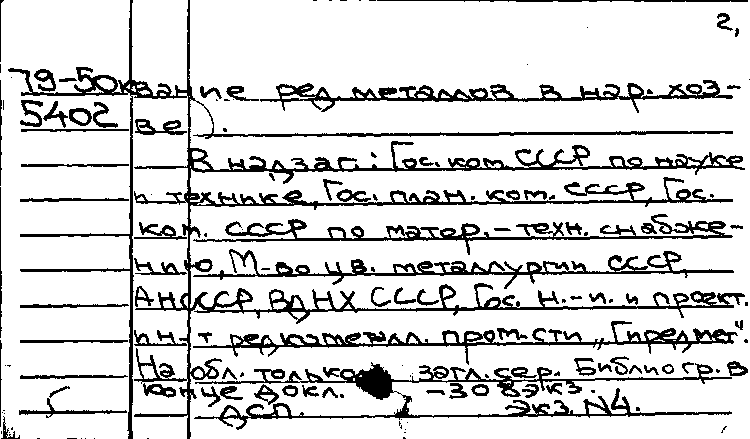 2,
79-50к
вание ред. металлов в нар. хоз-
5402 ве).
В надзаг.: Гос. ком. СССР по науке
и технике, Гос. план. ком. СССР, Гос.
ком. СССР по матер.-техн. снабже-
нию, М-во цв. металлургии СССР,
АН СССР, ВДНХ СССР, Гос. н.-и. и проект.
ин-т редкометалл. пром-сти „Гиредмет".
На обл. только загл. сер. Библиогр. в
конце докл. -308 экз.
ДСП. Экз. N4.